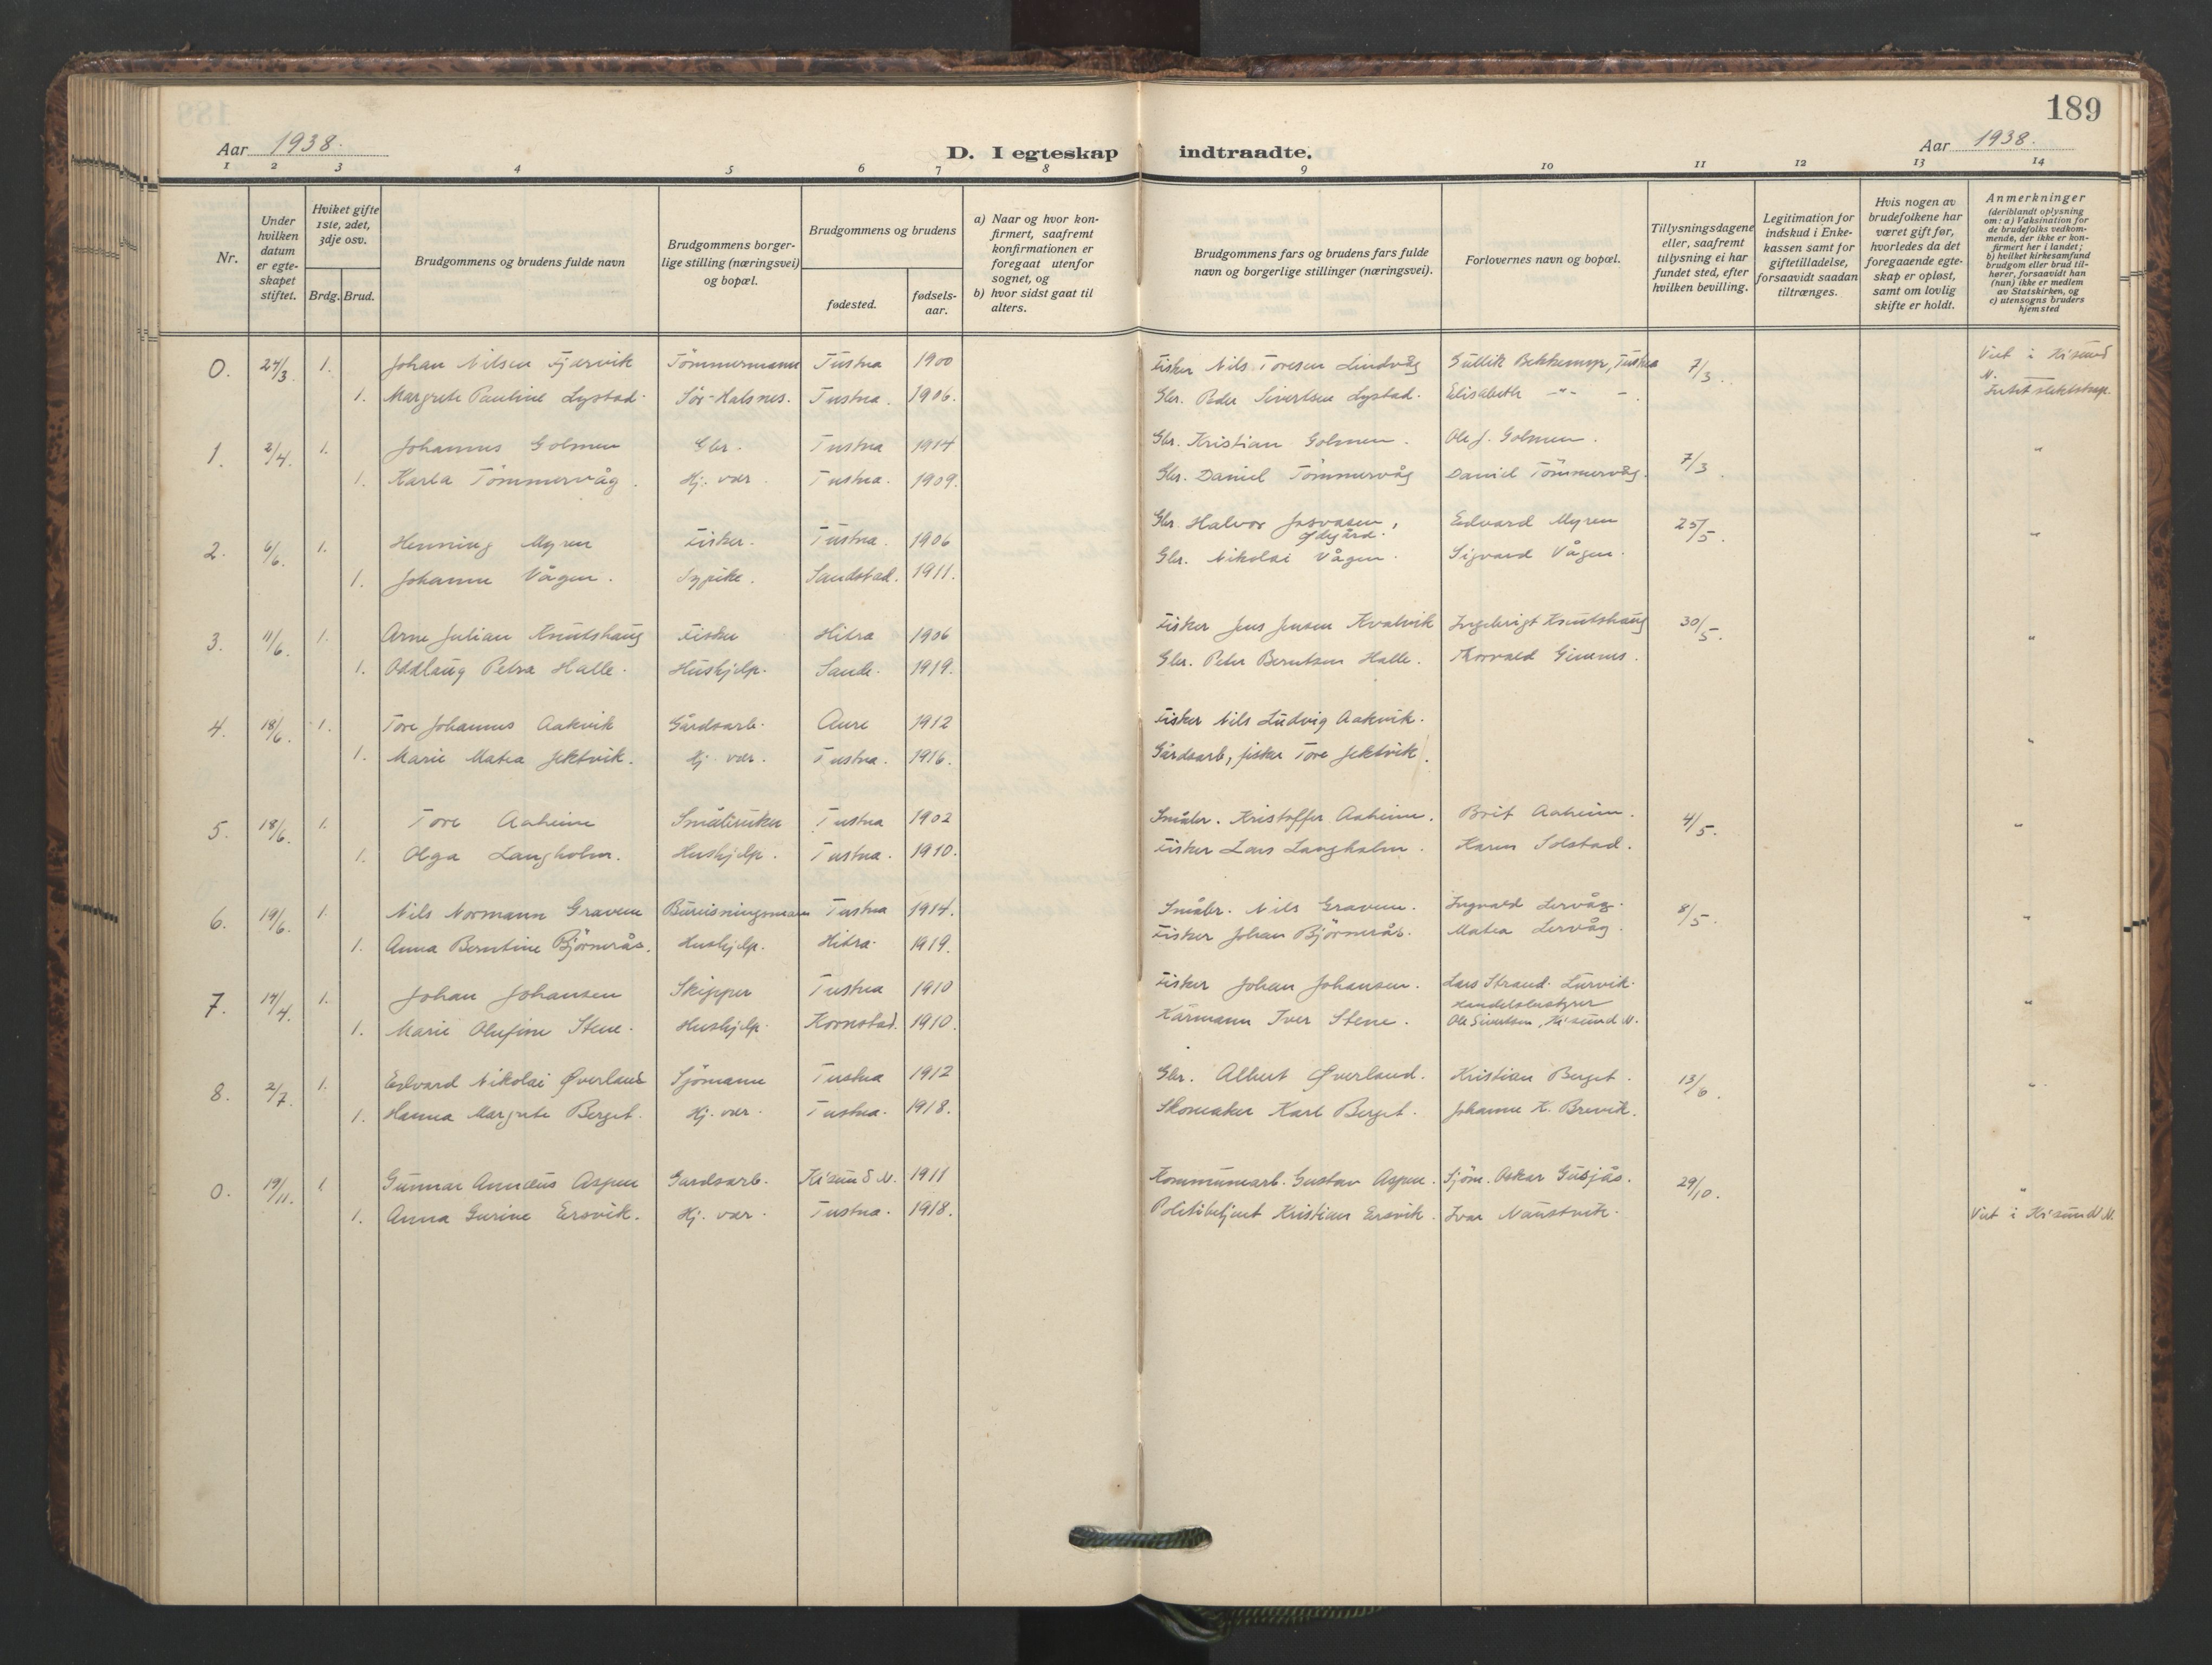 189
Aar 1938.
D. I egteskap indtraadte.
Aar 1938.
1 2 3 4 5 6 7 8 9 10 11 12 13 14
Nr.
Under hvilken datum er egteskapet stiftet.
Hviket gifte 1ste, 2det, 3dje osv.
Brdg. Brud.
Brudgommens og brudens fulde navn
Brudgommens borgerlige stilling (næringsvei) og bopæl.
Brudgommens og brudens
fødested.
fødselsaar.
a) Naar og hvor konfirmert, saafremt konfirmationen er foregaat utenfor sognet, og
b) hvor sidst gaat til alters.
Brudgommens fars og brudens fars fulde navn og borgerlige stillinger (næringsvei).
Forlovernes navn og bopæl.
Tillysningsdagene eller, saafremt tillysning ei har fundet sted, efter hvilken bevilling.
Legitimation for indskud i Enkekassen samt for giftetilladelse, forsaavidt saadan tiltrænges.
Hvis nogen av brudefolkene har været gift før, hvorledes da det foregaaende egteskap er opløst, samt om lovlig skifte er holdt.
Anmerkninger (deriblandt oplysning om: a) Vaksination for de brudefolks vedkommende, der ikke er konfirmert her i landet; b) hvilket kirkesamfund brudgom eller brud tilhører, forsaavidt han (hun) ikke er medlem av Statskirken, og c) utensogns bruders hjemsted
0. 24/3. 1. Johan Nilsen Fjærvik Tömmermann Tustna 1900 Fisker Nils Toresen Lindvåg Gullik Bekkemyr, Tustna 7/3. Viet i Kr'sund N.
1. Margrete Pauline Lystad. Sör-Halsnes. Tustna. 1906. Gbr. Peder Sivertsen Lystad. Elisabeth -"- -. Intet slektskap.
1. 2/4. 1. Johannes Golmen Gbr. Tustna 1914 Gbr. Kristian Golmen. Ole J. Golmen. 7/3. "
1. Karla Tömmervåg. Hj. vær. Tustna. 1909. Gbr. Daniel Tömmervåg Daniel Tömmervåg.
2. 6/6. 1. Henning Myren Fisker. Tustna. 1906 Gbr. Halvor Josvasen, Ødegård. Edvard Myren 25/5. "
1. Johanne Vågen. Sypike. Sandstad. 1911. Gbr. Nikolai Vågen. Sigvard Vågen.
3. 11/6. 1. Arne Julian Knutshaug Fisker Hitra 1906 Fisker Jens Jensen Kvalvik Ingebrigt Knutshaug 30/5. "
1. Oddlaug Petra Halle. Hushjelp. Sande. 1919. Gbr. Peter Berntsen Halle. Thorvald Gimnes.
4. 18/6. 1. Tore Johannes Aakvik Gårdsarb. Aure 1912 Fisker Nils Ludvig Aakvik. "
1. Marie Matea Jektvik. Hj. vær. Tustna. 1916. Gårdsarb, fisker Tore Jektvik.
5. 18/6. 1. Tore Aaheim Småbruker Tustna 1902 Småbr. Kristoffer Aaheim. Brit Aaheim. 4/5. "
1. Olga Langholm. Hushjelp. Tustna. 1910. Fisker Lars Langholm. Karen Solstad.
6. 19/6. 1. Nils Normann Gravem Bureisningsmann Tustna 1914. Småbr. Nils Gravem. Ingvald Lervåg. 8/5. "
1. Anna Berntine Björnerås. Hushjelp. Hitra. 1919. Fisker Johan Björnerås. Matea Lervåg.
7. 14/4. 1. Johan Johansen Skipper Tustna 1910 Fisker Johan Johansen. Lars Strand. Lurvik. "
1. Marie Olufine Stene. Hushjelp. Kornstad. 1910. Kårmann Iver Stene. Handelsbestyrer Ole Sivertsen, Kr'sund N.
8. 2/7. 1. Edvard Nikolai Øverland Sjömann Tustna 1912 Gbr. Albert Øverland. Kristian Berget. 13/6. "
1. Hanna Margrete Berget. Hj. vær. Tustna. 1918. Skomaker Karl Berget. Johanne K. Brevik.
0. 19/11. 1. Gunnar Annæus Aspen Gardsarb. Kr'sund N. 1911 Kommunearb. Gustav Aspen. Sjöm. Oskar Gusjås. 29/10. "
1. Anna Gurine Ersvik. Hj. vær. Tustna. 1918. Politibetjent Kristian Ersvik. Ivar Naustvik. Viet i Kr'sund N.